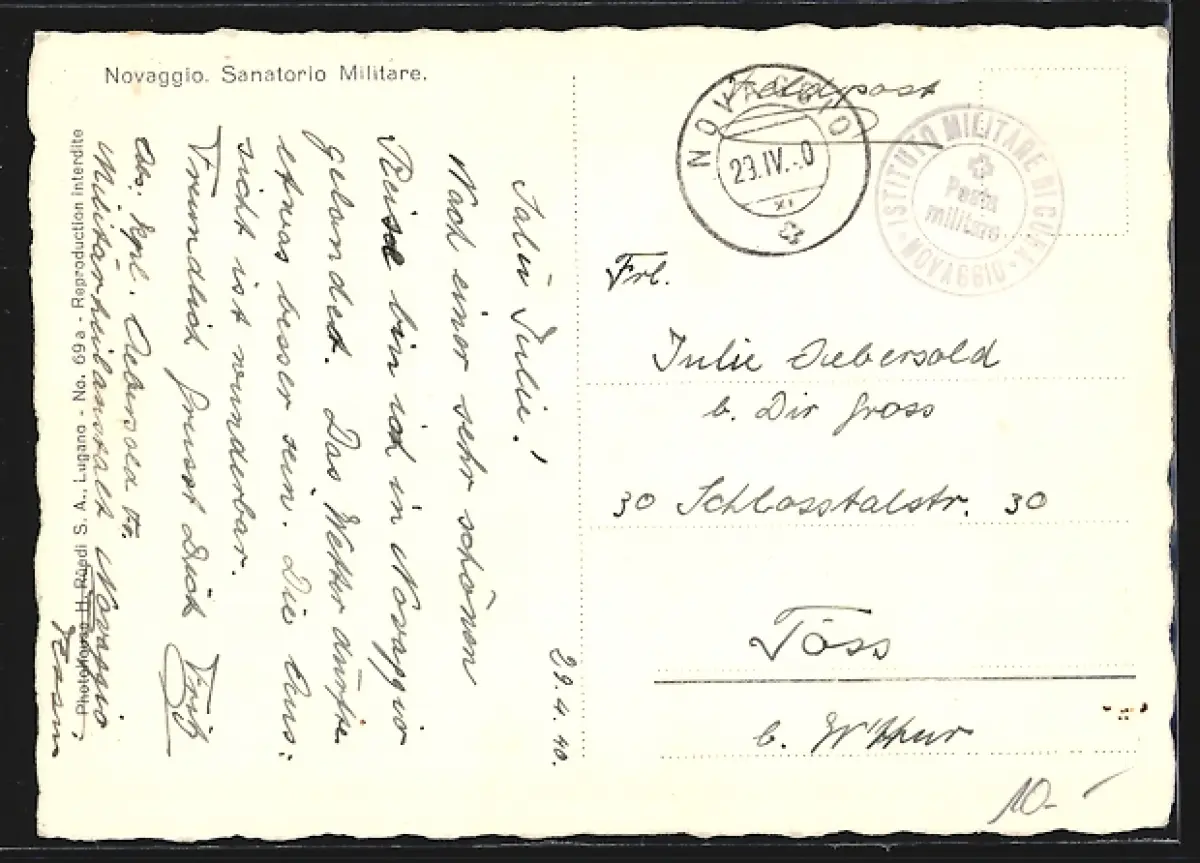 Novaggio. Sanatorio Militare.
Photohaus H. Rüedi S. A., Lugano - No. 69a - Reproduction interdite
29.4.40.
Salü Julie!
Nach einer sehr schönen
Reise bin ich in Novaggio
gelandet. Das Wetter dürfte
etwas besser sein. Die Aus:
sicht ist wunderbar.
Freundlich grüsst Dich Fritz
Abs. Kpl. Aebersold Fr.
Militärheilanstalt Novaggio
Tessin
Feldpost
NOVAGGIO
29.IV.-0
XI
ISTITUTO MILITARE DI CURA
Posta
militare
NOVAGGIO
Frl.
Julie Aebersold
b. Dir Gross
30 Schlosstalstr. 30
Töss
b. W'thur
10.-